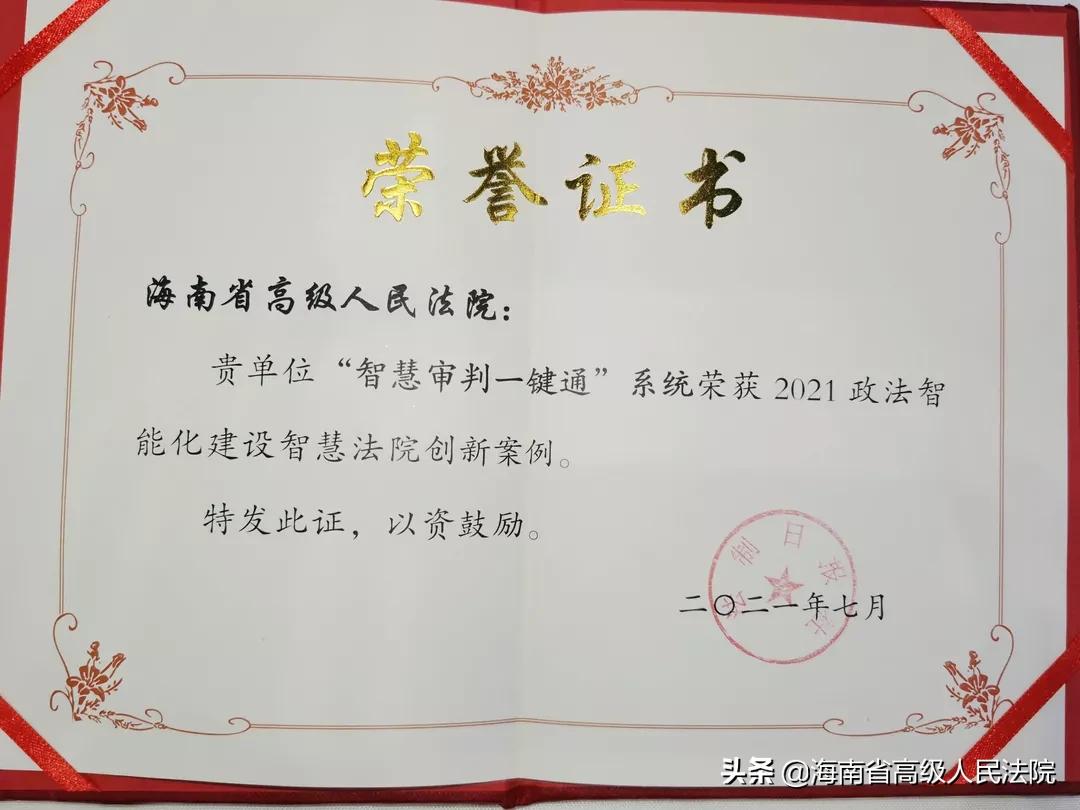 荣誉证书
海南省高级人民法院：
贵单位“智慧审判一键通”系统荣获 2021 政法智
能化建设智慧法院创新案例。
特发此证，以资鼓励。
法制日报社
二〇二一年七月
头条 @海南省高级人民法院